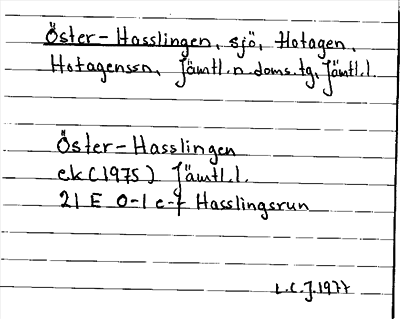 Öster-Hasslingen, sjö, Hotagen,
Hotagenssn, Jämtl.n.doms.tg, Jämtl.l.
Öster-Hasslingen
ek(1975) Jämtl.l.
21 E 0-1 e-f Hasslingsrun
L.C.J.1977